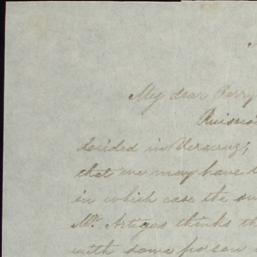 My dear Perry
decided in Veracruz,
that we may have
in which case the
Mr. Artigas thinks
with some person